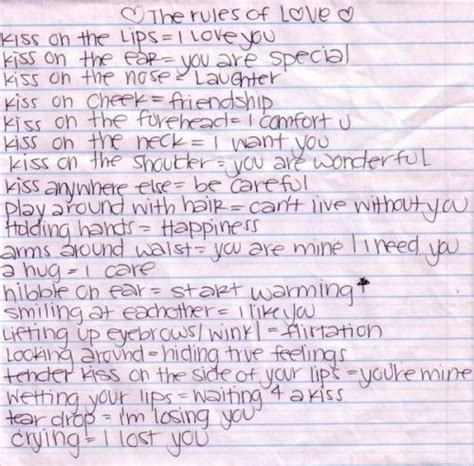 ♡ The rules of Love ♡
kiss on the Lips = I Love you
kiss on the ear = you are special
kiss on the nose = Laughter
kiss on cheek = friendship
kiss on the forehead = I comfort u
kiss on the neck = I want you
kiss on the shoulder = you are wonderful
kiss anywhere else = be careful
play around with hair = can't live without you
Holding hands = Happiness
arms around waist = you are mine / I need you
a hug = I care
nibble on ear = start warming
smiling at eachother = I like you
Lifting up eyebrows / wink / = flirtation
Looking around = hiding true feelings
tender kiss on the side of your lips = you're mine
wetting your lips = waiting 4 a kiss
tear drop = i'm losing you
crying = I lost you